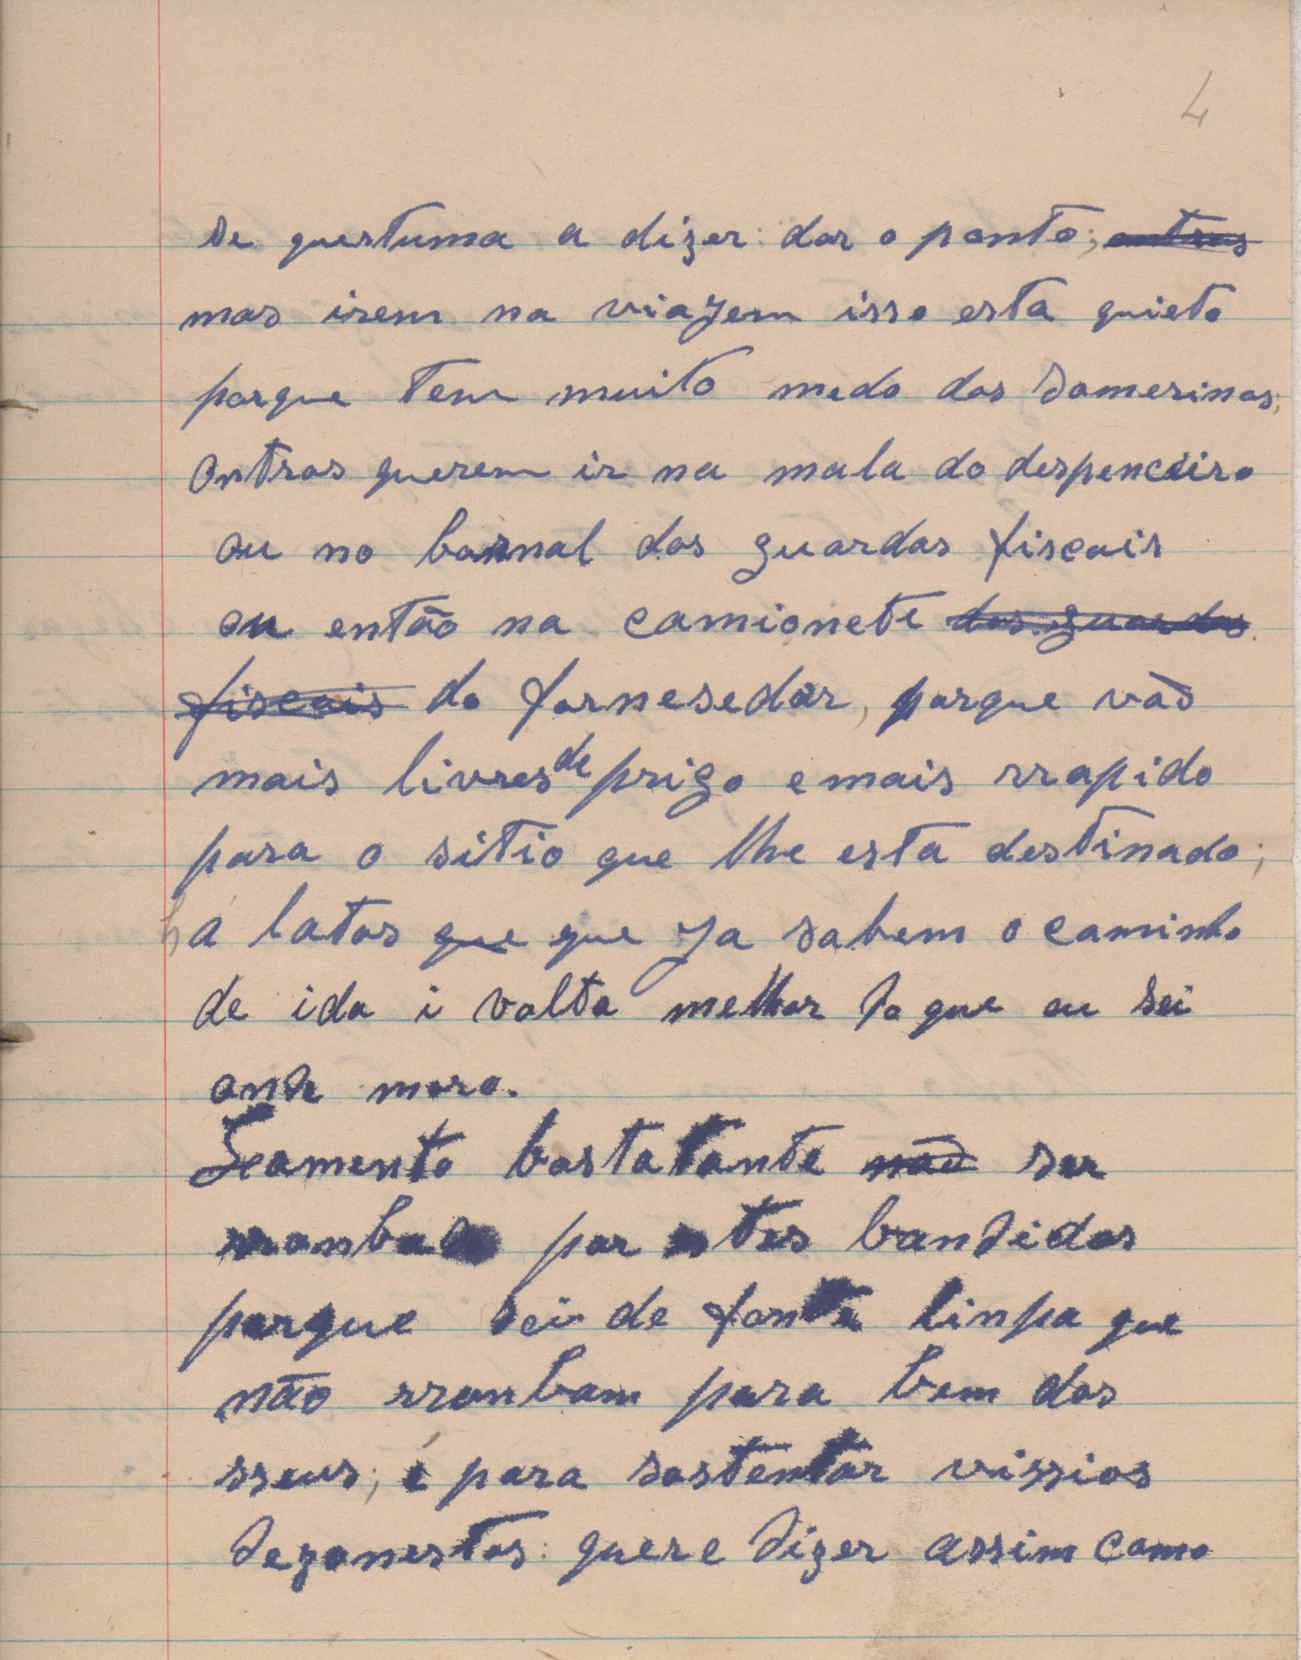 4
se questuma a dizer: dar o ponto; outros
mas irem na viajem isso esta quieto
porque tem muito medo das Somerinas;
Ontros querem ir na mala do despenceiro
ou no bornal dos guardas fiscais
ou então na camionete dos guardas
fiscais do fornesedor, porque vão
mais livres de prigo e mais rrapido
para o sitio que lhe esta destinado;
há latas que que ja sabem o caminho
de ida i volta melhor do que eu sei
onde moro.
Leamento bastatante não ser
por estes bandidos
porque sei de fonte linpa que
não rroubam para bem dos
sseus; é para sostentar vissios
dezonestos: quere dizer assim como